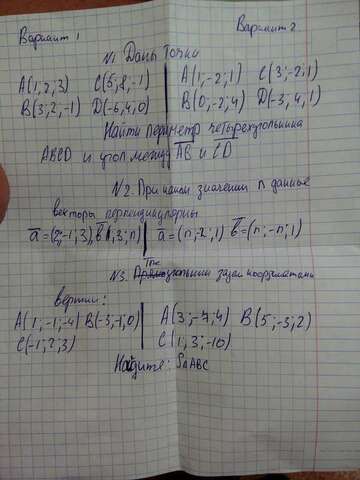 Вариант 1 Вариант 2
N1. Даны точки
A(1,2,3) C(5;8,-1) A(1,-2;1) C(3;-2;1)
B(3;2,-1) D(-6,4,0) B(0,-2;4) D(-3,4,1)
Найти периметр четырехугольника
ABCD и угол между AB и CD
N2. При каком значении n данные
векторы перпендикулярны
a=(2;-1,3), b(1,3;n) a=(n;-2;1) b=(n;-n;1)
N3. задан координатами
вершин:
A(1;-1;-4) B(-3,-1,0) A(3;-7,4) B(5;-3;2)
C(-1;2;3) C(1,3;-10)
Найдите: S△ABC